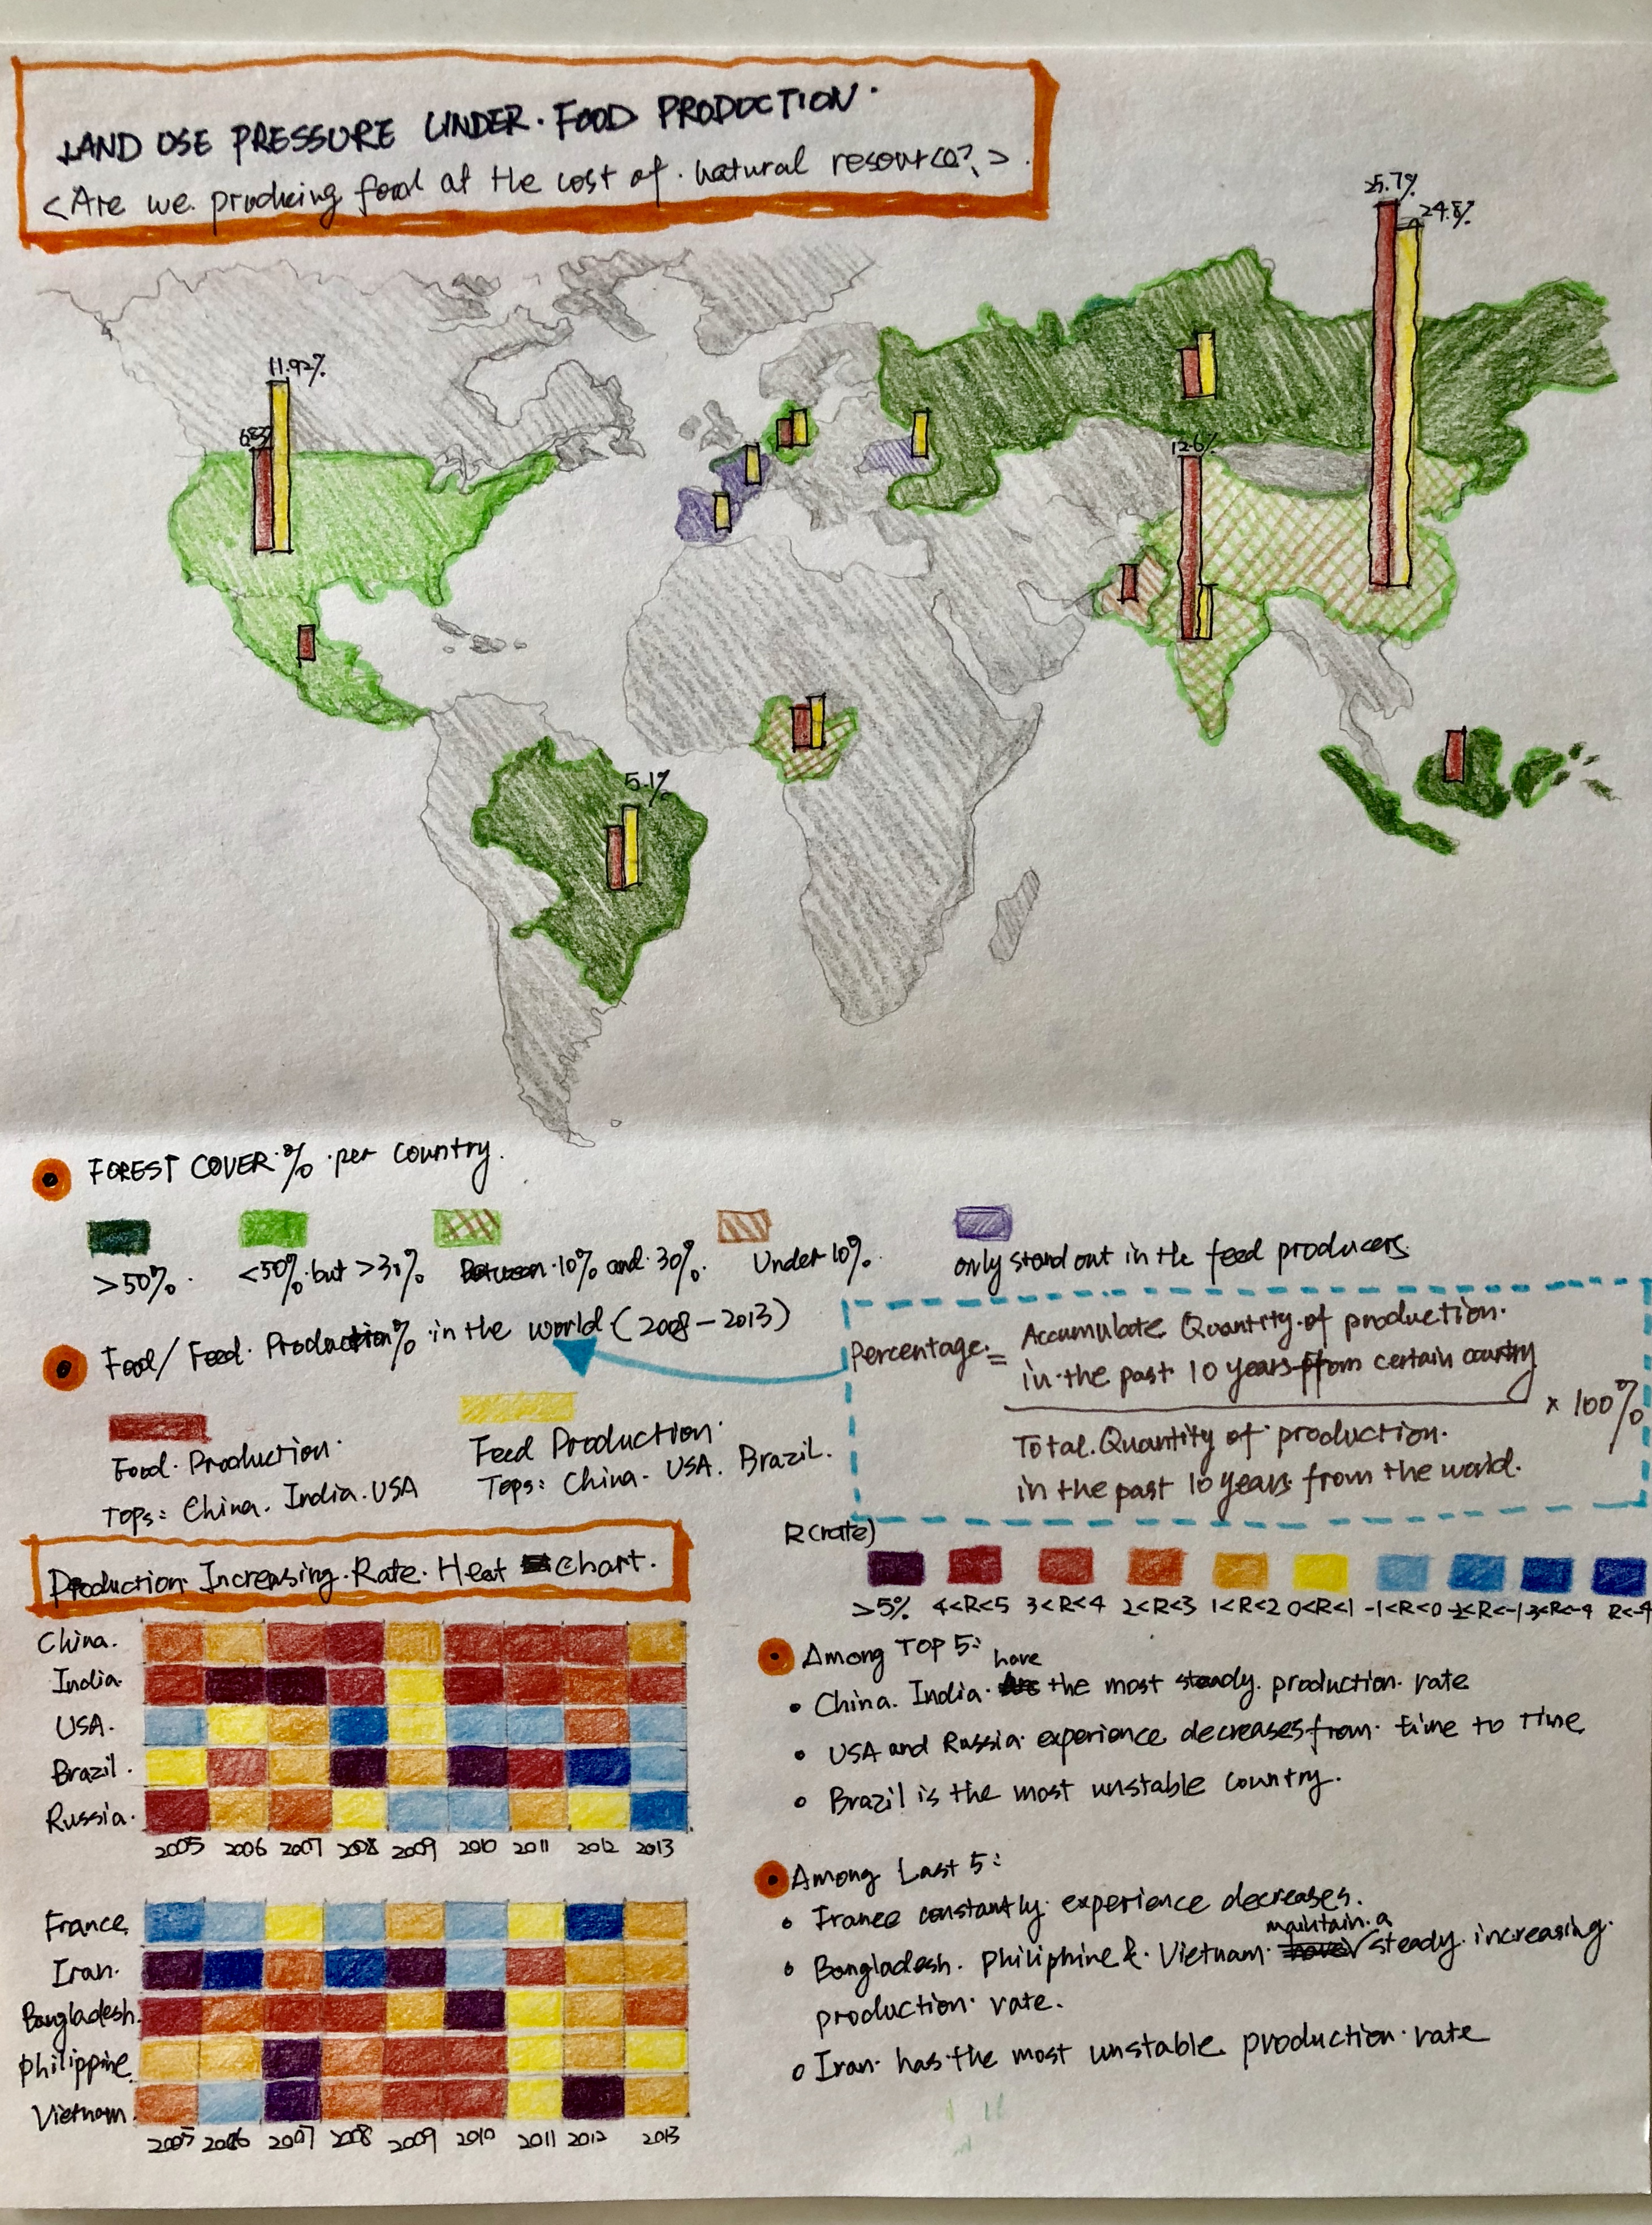 LAND USE PRESSURE UNDER. FOOD PRODUCTION.
<Are we producing food at the cost of. natural resource?>
25.7%
24.8%
11.92%
6.83%
12.6%
5.1%
FOREST COVER % per country.
>50%.
<50% but >30%
Between 10% and 30%.
Under 10%.
only stand out in the feed producers.
Food/Feed Production% in the world (2008-2013)
Percentage = Accumulate Quantity of production
in the past 10 years from certain country
× 100%
Total Quantity of production.
in the past 10 years from the world.
Food Production.
Tops: China. India. USA
Feed Production.
Tops: China. USA. Brazil.
Production Increasing Rate Heat chart.
R(rate)
>5% 4<R<5 3<R<4 2<R<3 1<R<2 0<R<1 -1<R<0 -2<R<-1 -3<R<-4 R<-4
China.
India.
USA.
Brazil.
Russia.
2005 2006 2007 2008 2009 2010 2011 2012 2013
France
Iran.
Bangladesh.
Philippine
Vietnam
2005 2006 2007 2008 2009 2010 2011 2012 2013
Among TOP 5:
China. India. have the most steady production rate
USA and Russia experience decreases from time to time
Brazil is the most unstable country.
Among Last 5:
France constantly experience decreases.
Bangladesh. Philiphine & Vietnam. maintain a steady increasing
production rate.
Iran has the most unstable production rate